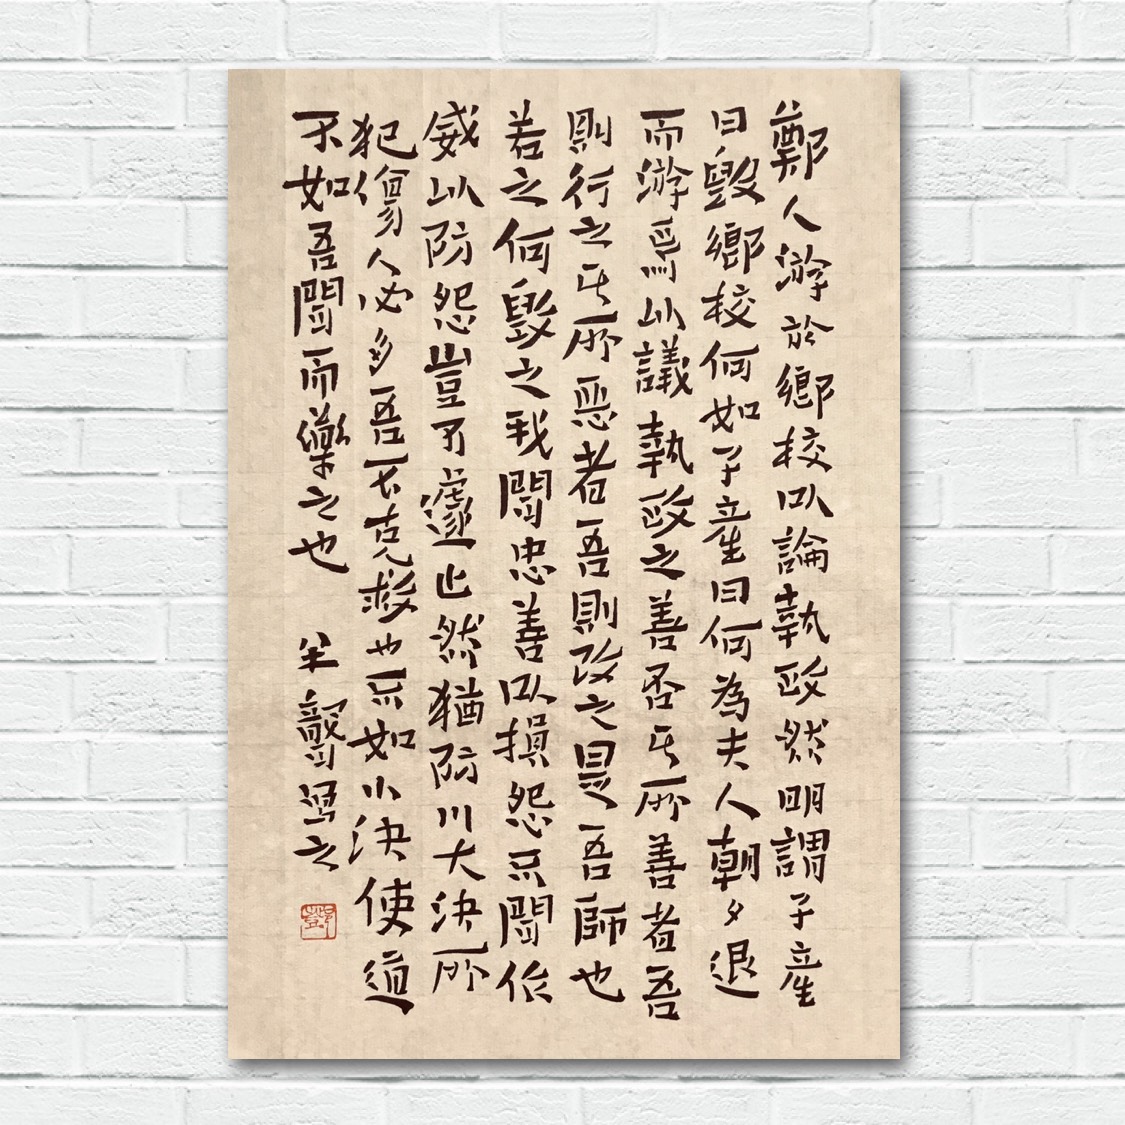 鄭人游於鄉校以論執政然明謂子產
曰毀鄉校何如子產曰何為夫人朝夕退
而游焉以議執政之善否其所善者吾
則行之其所惡者吾則改之是吾師也
若之何毀之我聞忠善以損怨不聞作
威以防怨豈不遽止然猶防川大決所
犯傷人必多吾不克救也不如小決使道
不如吾聞而藥之也 半聾寫之